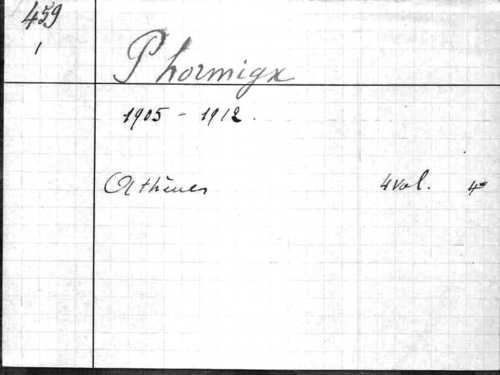 459
1
Phormigx
1905 - 1912.
Athènes 4 vol. 4º